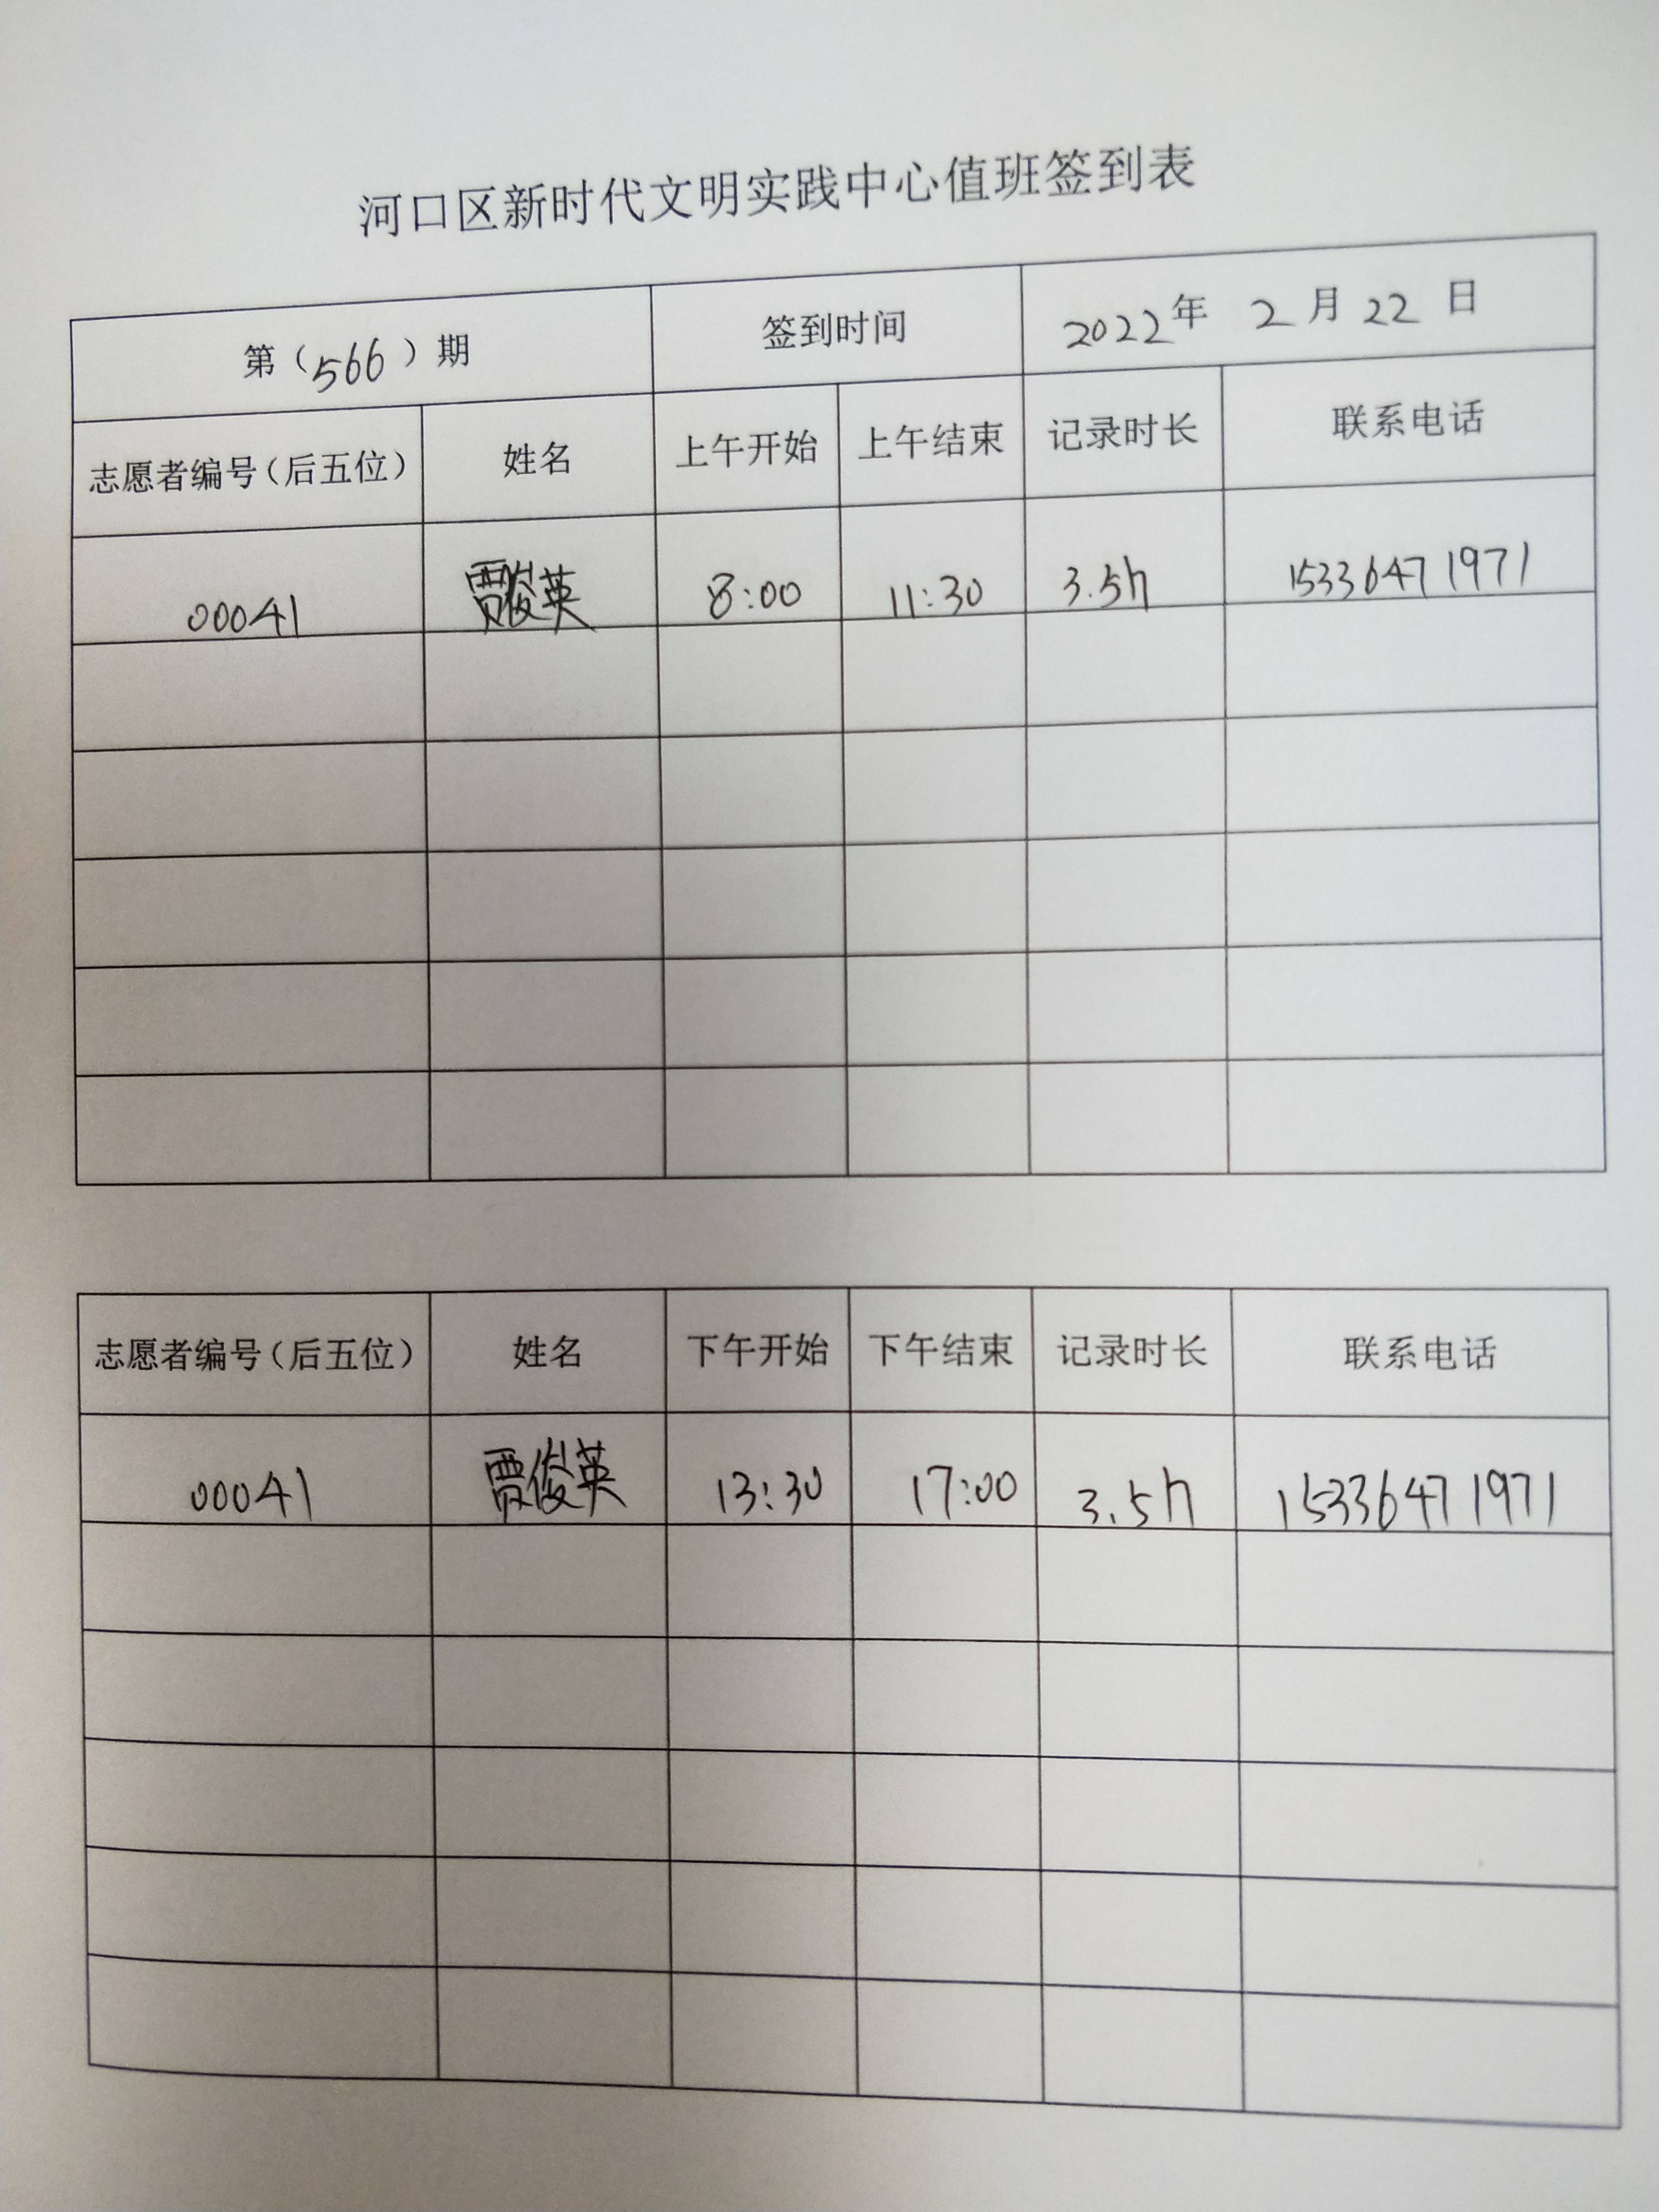 河口区新时代文明实践中心值班签到表
第（566）期 签到时间 2022年 2月22日
志愿者编号（后五位） 姓名 上午开始 上午结束 记录时长 联系电话
00041 贾俊英 8:00 11:30 3.5h 15336471971
志愿者编号（后五位） 姓名 下午开始 下午结束 记录时长 联系电话
00041 贾俊英 13:30 17:00 3.5h 15336471971